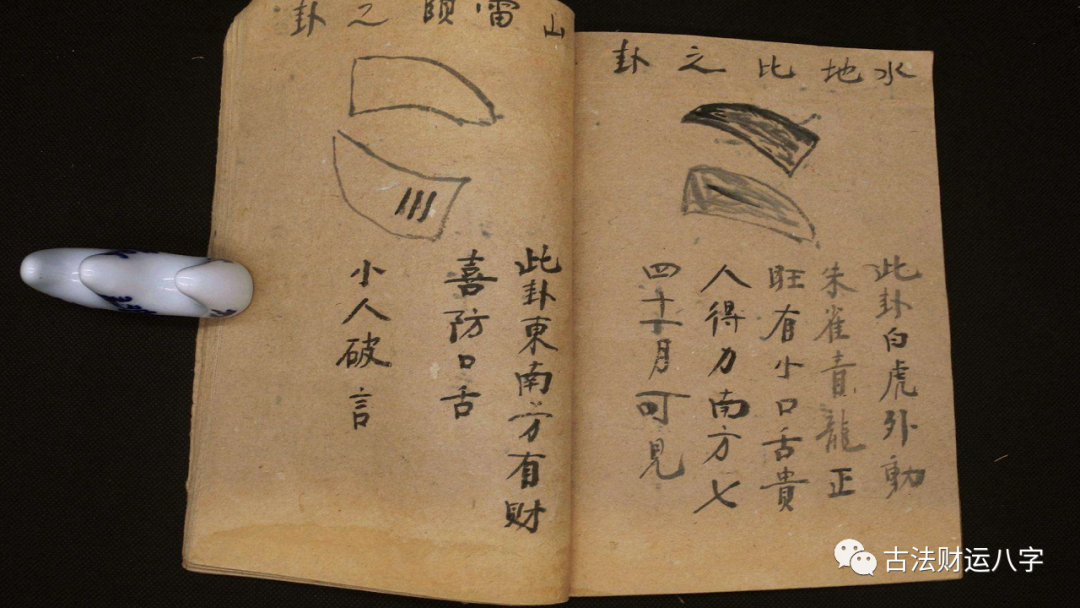 水地比之卦
此卦白虎外動
朱雀青龍正
旺有小口舌貴
人得力南方七
四十一月可見
山雷頤之卦
此卦東南方有財
喜防口舌
小人破言
古法财运八字